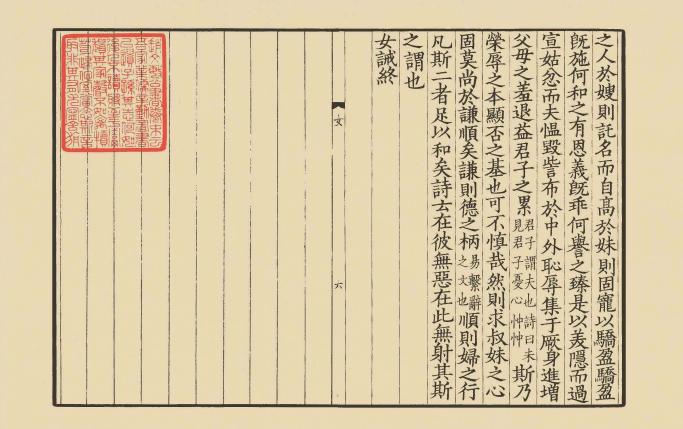 之人於嫂則託名而自高於妹則固寵以驕盈驕盈
旣施何和之有恩義旣乖何譽之臻是以美隱而過
宣姑忿而夫慍毀訾布於中外恥辱集于厥身進增
父母之羞退益君子之累君子謂夫也詩曰未見君子憂心忡忡斯乃
榮辱之本顯否之基也可不慎哉然則求叔妹之心
固莫尚於謙順矣謙則德之柄易繫辭之文也順則婦之行
凡斯二者足以和矣詩云在彼無惡在此無射其斯
之謂也
女誡終
女
六